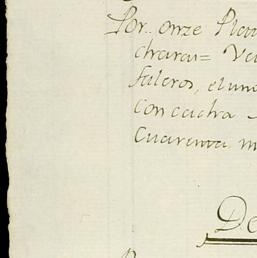 Por.. onze Pla
charas= Ve
faleros, el un
Con cucha
Cuarenta m
De